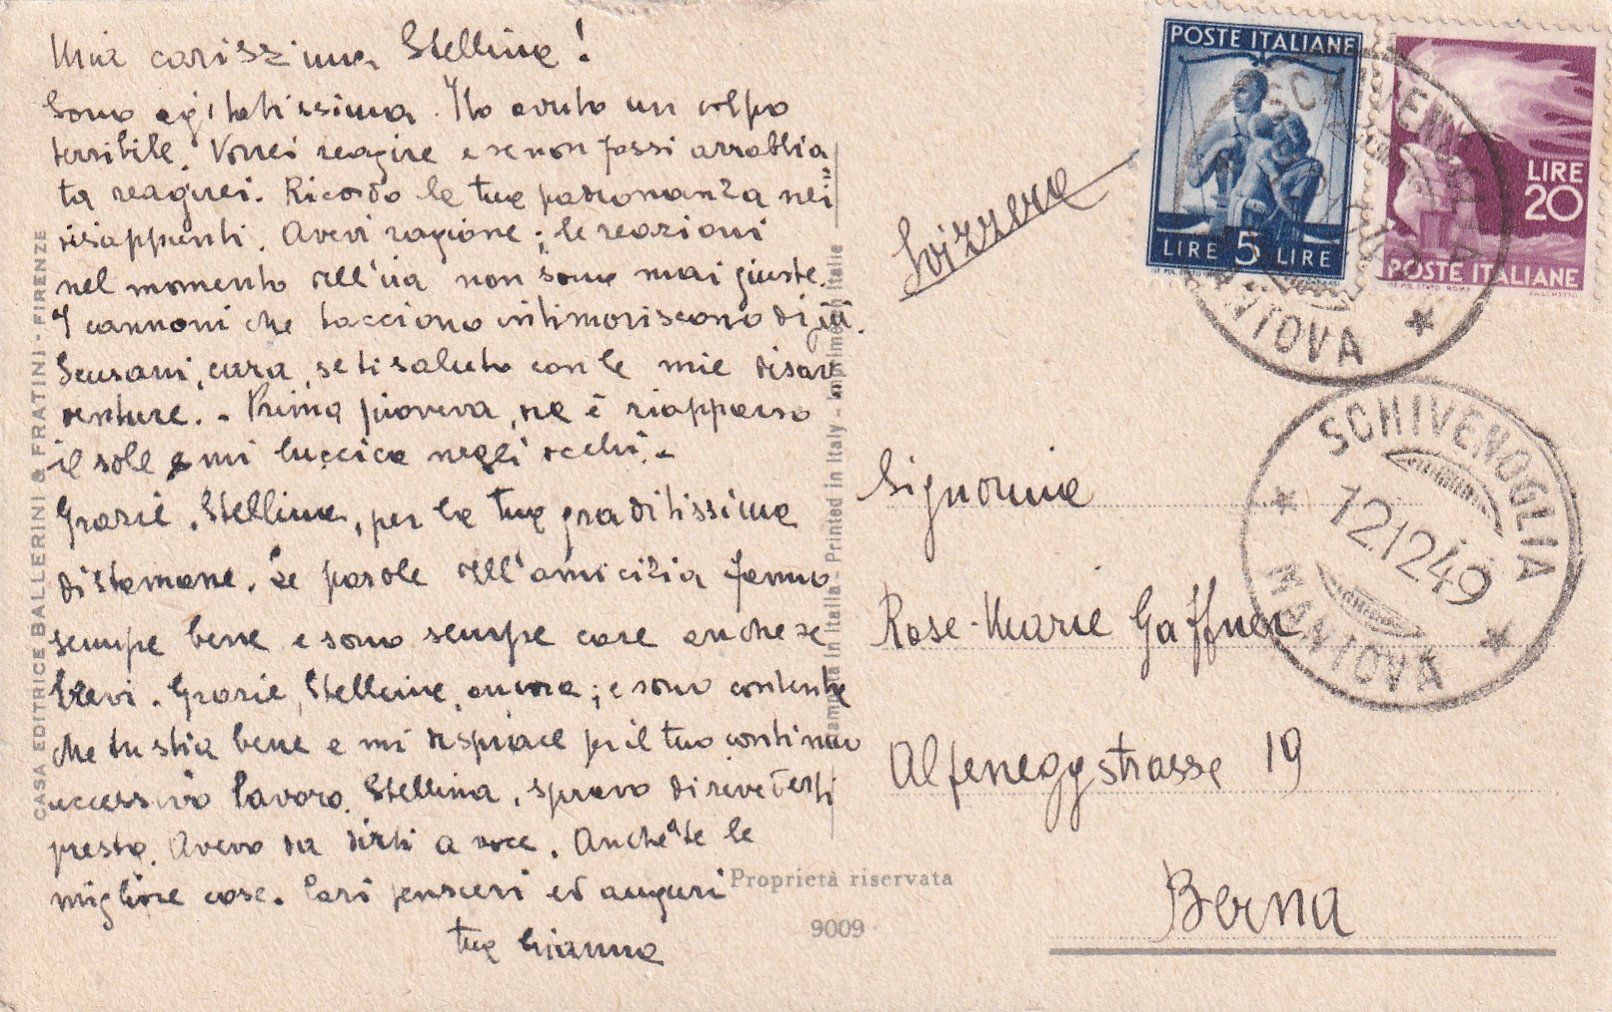 Mia carissima Stellina!
Sono agitatissima. Ho avuto un colpo
terribile. Vorrei reagire e se non fossi arrabbia
ta reagirei. Ricordo la tua padronanza nei
disappunti. Avevi ragione; le reazioni
nel momento dell'ira non sono mai giuste.
I cannoni che tacciono intimoriscono di più.
Scusami, cara, se ti saluto con le mie disav
venture. - Prima pioveva, ora è riapparso
il sole e mi luccica negli occhi. -
Grazie, Stellina, per la tua graditissima
di stamane. Le parole dell'amicizia fanno
sempre bene e sono sempre care anche se
brevi. Grazie, Stellina, ancora; e sono contenta
che tu stia bene e mi dispiace per il tuo continuo
eccessivo lavoro. Stellina, spravo di rivederti
presto. Avevo da dirti a voce. Anche a te le
migliori cose. Cari pensieri ed auguri
tua Gianna
CASA EDITRICE BALLERINI & FRATINI - FIRENZE
Stampata in Italia - Printed in Italy - Imprimé en Italie
Proprietà riservata
9009
Svizzera
POSTE ITALIANE
LIRE 5 LIRE
LIRE
20
POSTE ITALIANE
SCHIVENOGLIA
MANTOVA
SCHIVENOGLIA
12.12.49
MANTOVA
Signorina
Rose-Marie Gaffner
Alpeneggstrasse 19
Berna